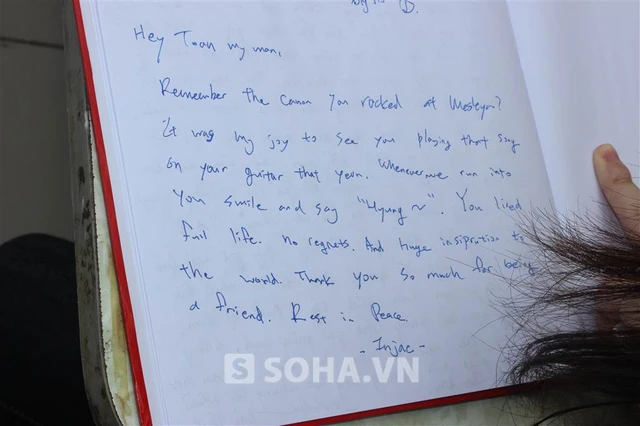 D.
Hey Toan my man,
Remember the Canon you rocked at Wesleyan?
it was my joy to see you playing that song
on your guitar that year. Whenever we run into
you smile and say "Hyung ~". You lived
full life. no regrets. And huge insipration to
the world. Thank you so much for being
a friend. Rest in Peace.
- Injae -
S SOHA.VN